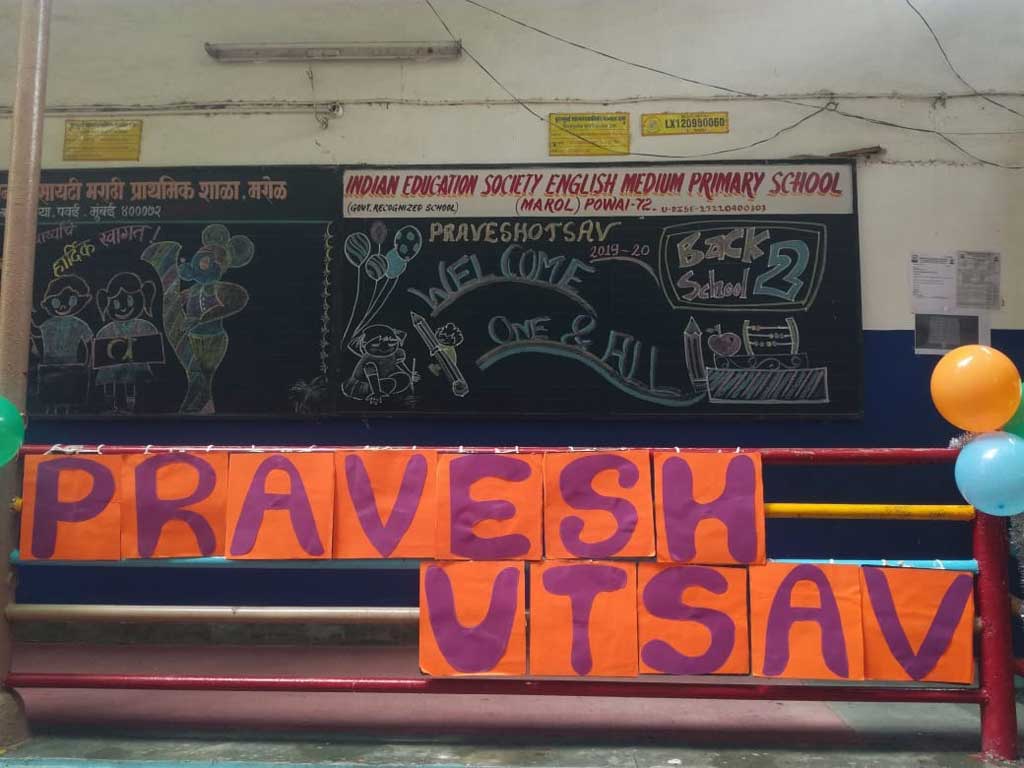 सायटी मराठी प्राथमिक शाळा, मरोळ
पवई, मुंबई ४०००७२
हार्दिक स्वागत!
INDIAN EDUCATION SOCIETY ENGLISH MEDIUM PRIMARY SCHOOL
(GOVT. RECOGNIZED SCHOOL) (MAROL) POWAI-72. U-DISE-27220400303
PRAVESHOTSAV
2019-20
WELCOME
ONE & ALL
BACK
2
School
LX120990060
PRAVESH
UTSAV